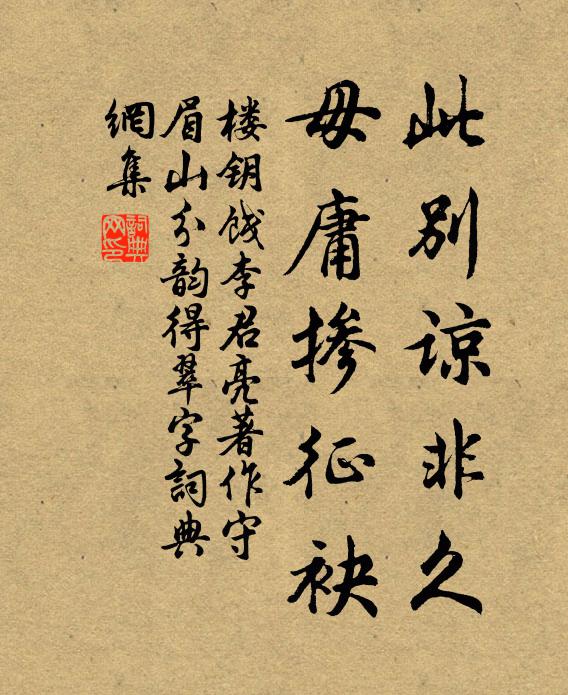 此别谅非久
毋庸掺征袂
楼钥饯李君亮著作守
眉山分韵得翠字詞典
網集
詞典
网印